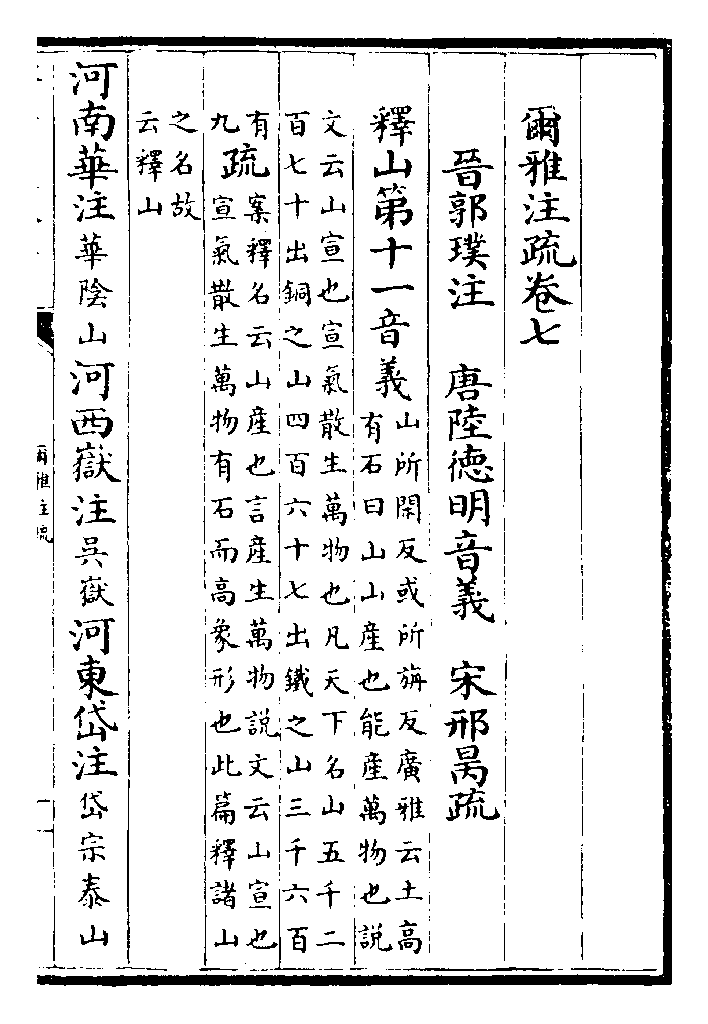 爾雅注疏卷七
晉郭璞注 唐陸德明音義 宋邢昺疏
釋山第十一音義 山所閑反或所旃反廣雅云土高
有石曰山山產也能產萬物也說
文云山宣也宣氣散生萬物也凡天下名山五千二
百七十出銅之山四百六十七出鐵之山三千六百
有
九
疏 案釋名云山產也言產生萬物說文云山宣也
宣氣散生萬物有石而高象形也此篇釋諸山
之名故
云釋山
河南華注華陰山河西嶽注吳嶽河東岱注岱宗泰山
爾雅注疏